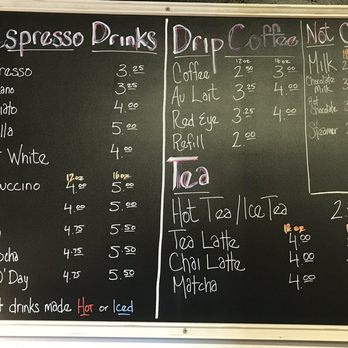 spresso Drinks
resso 3.25
ano 3.25
iato 4.00
lla 5.00
t White 4.00
12oz 16oz
uccino 4.00 5.00
4.00 5.00
4.75 5.50
ocha 4.75 5.50
O'Day 4.75 5.50
t drinks made Hot or Iced
Drip Coffee
12oz 16oz
Coffee 2.50 3.00
Au Lait 3.25 4.00
Red Eye 3.25 4.00
Refill 2.00
Tea
Hot Tea/Ice Tea 2.
12oz
Tea Latte 4.00
Chai Latte 4.00
Matcha 4.00
Not C
Milk
Chocolate Milk
Hot Chocolate
Steamer